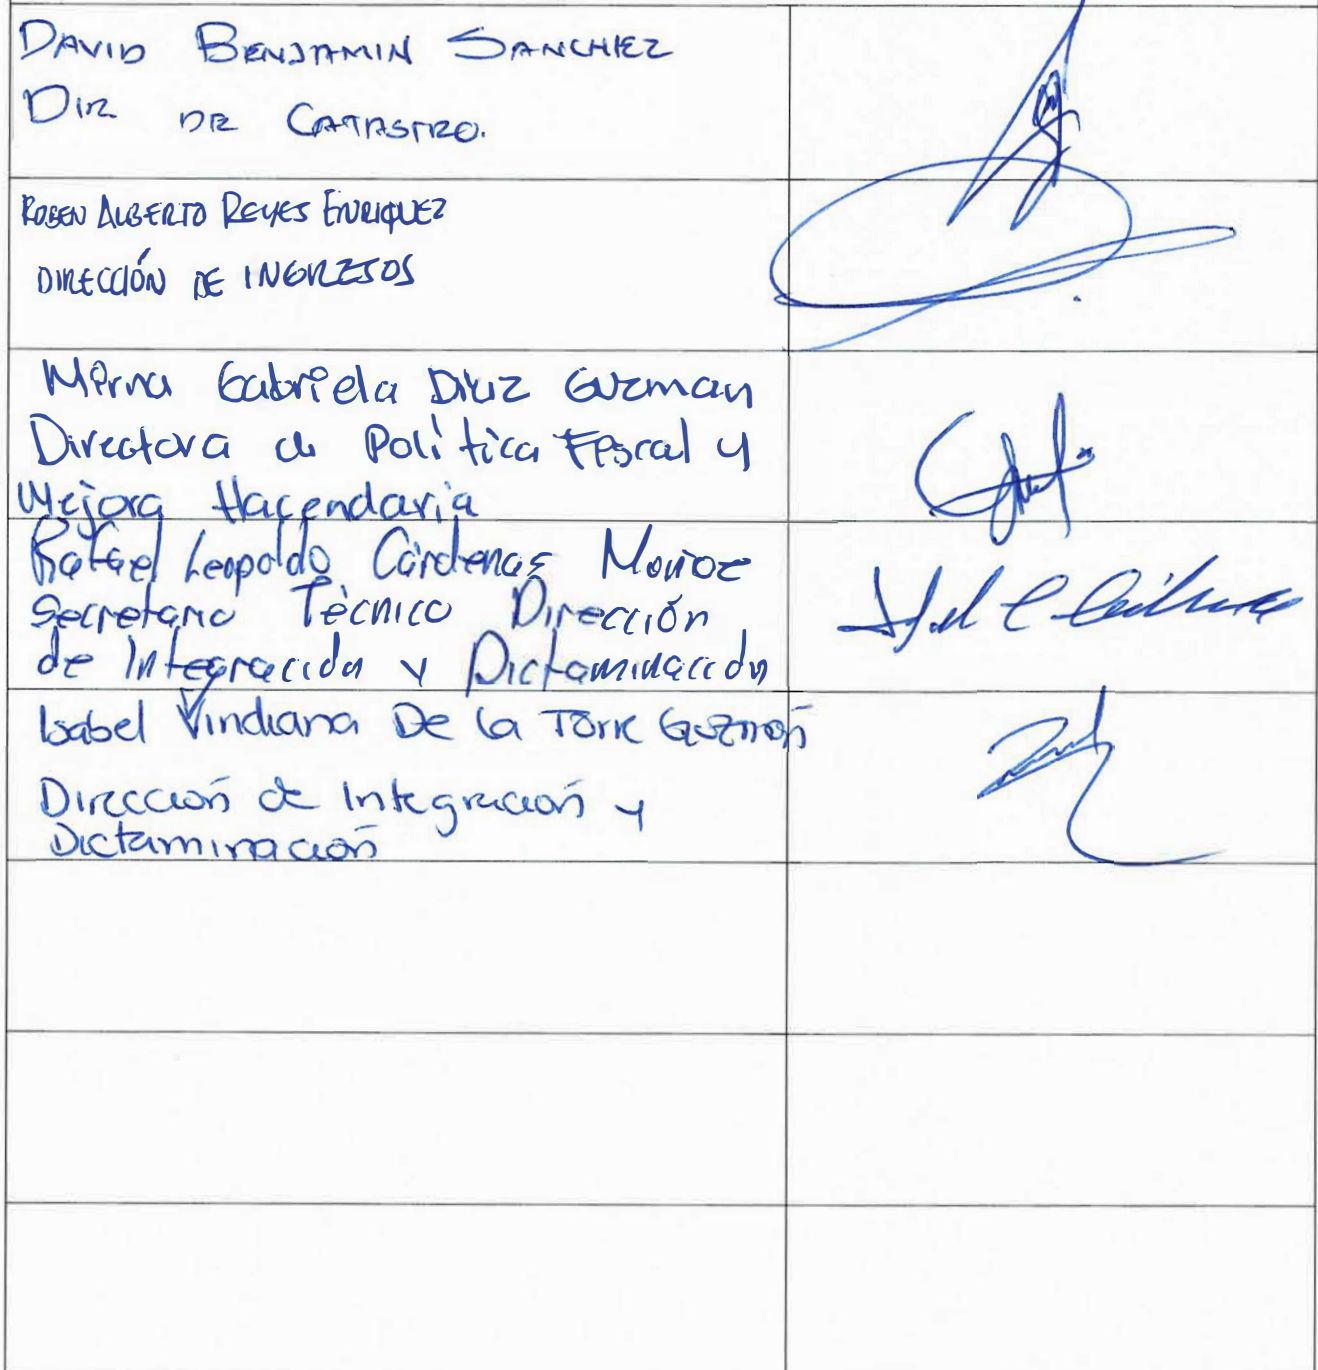 DAVID BENJAMIN SANCHEZ
DIR DE CATASTRO.
RUBEN ALBERTO REYES ENRIQUEZ
DIRECCIÓN DE INGRESOS
Mirna Gabriela Diaz Guzman
Directora de Política Fiscal y
Mejora Hacendaria
Rafael Leopoldo Cárdenas Muñoz
Secretario Técnico Dirección
de Integración y Dictaminación
Isabel Viridiana De la Torre Guzmán
Dirección de Integración y
Dictaminación